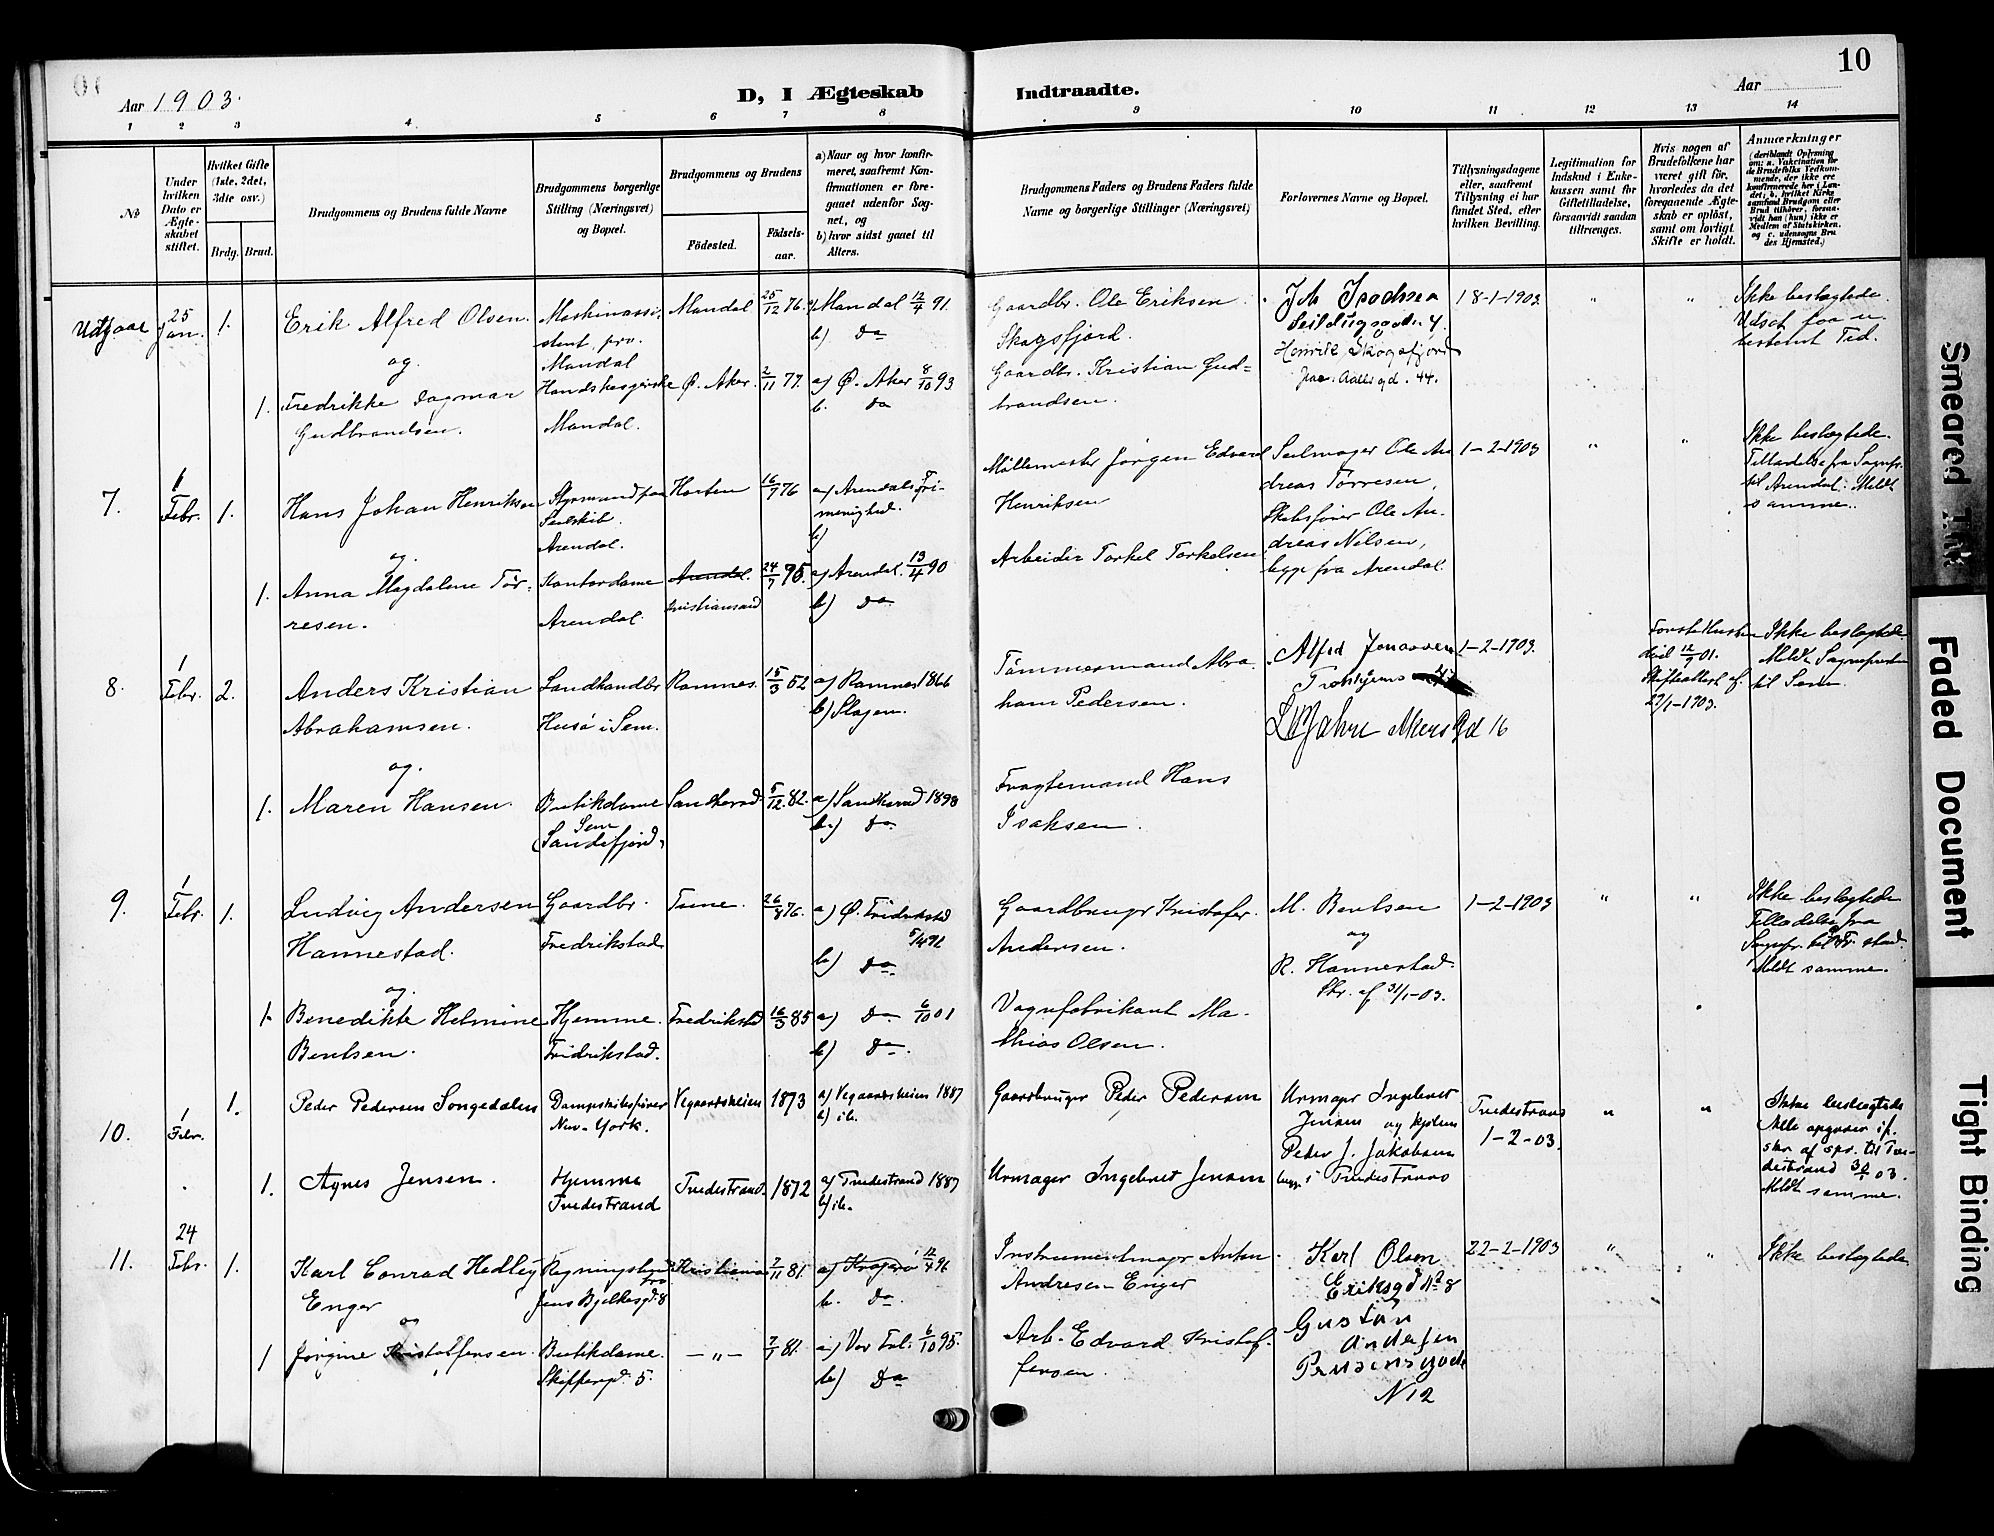 10
Aar 1903.
D, I Ægteskab Indtraadte.
Aar
1 2 3 4 5 6 7 8 9 10 11 12 13 14
No
Under hvilken Dato er Ægteskabet stiftet.
Hvilket Gifte (1ste, 2det, 3die osv.)
Brdg. Brud.
Brudgommens og Brudens fulde Navne
Brudgommens borgerlige Stilling (Næringsvei) og Bopæl.
Brudgommens og Brudens
Fødested.
Fødselsaar.
a) Naar og hvor konfirmeret, saafremt Konfirmationen er foregaaet udenfor Sognet, og
b) hvor sidst gaaet til Alters.
Brudgommens Faders og Brudens Faders fulde Navne og borgerlige Stillinger (Næringsvei)
Forlovernes Navne og Bopæl.
Tillysningsdagene eller, saafremt Tillysning ei har fundet Sted, efter hvilken Bevilling.
Legitimation for Indskud i Enkekassen samt for Giftetilladelse, forsaavidt saadan tiltrænges.
Hvis nogen af Brudefolkene har været gift før, hvorledes da det foregaaende Ægteskab er opløst, samt om lovligt Skifte er holdt.
Anmærkninger
(deriblandt Oplysning om: a. Vakcination for de Brudefolks Vedkommende, der ikke ere konfirmerede her i Landet; b. hvilket Kirkesamfund Brudgom eller Brud tilhører, forsaavidt han (hun) ikke er Medlem af Statskirken, og c. udensogns Brudes Hjemsted.)
Udgaar 25 Jan. 1.
Erik Alfred Olsen.
og
1. Fredrikke Dagmar
Gudbrandsen.
Mandal
Mandal 25/12 76. a) Mandal 12/4 91.
b) Do
Mandal.
Ø. Aker. 2/11 77. a) Ø. Aker 8/10 93
b. Do
Gaardbr. Ole Eriksen
Skogsfjord.
Gaardbr. Kristian Gud-
brandsen.
Henrik Skogsfjord
18-1-1903.
" "
Ikke beslægtede.
Udsat paa u-
bestemt Tid.
7. 1 Febr. 1.
Hans Johan Henriksen
og
1. Anna Magdalene Tör-
resen.
Styrmand paa
Seilskib.
Arendal.
Kontordame
Arendal.
Horten 16/7 76 a) Arendals Tri-
menighed.
b)
Arendal.
Kristiansand
a) Arendal. 13/4 90
b) Do
Møllemester Jørgen Edvard
Henriksen
Arbeider Torkel Torkelsen
Seilmager Ole An
dreas Törresen,
Skibsfører Ole An.
dreas Nilsen,
begge fra Arendal.
1-2-1903
" "
Ikke beslægtede.
Tilladelse fra Sognepr.
til Arendal. Meldt
samme.
8. 1 Febr. 2.
Anders Kristian
Abrahamsen.
og.
1. Maren Hansen.
Landhandler
Husø i Sem.
Butikdame
Sem
(Sandefjord)
Ramnes. 15/3 52 a) Ramnes 1866
b) Slagen.
Sandherad. 5/12 82. a) Sandherad 1898
b.) Do.
Tømmermand Abra.
ham Pedersen.
Fragtemand Hans
Isaksen.
Alfred Jonassen
1-2-1903.
Første Hustru
død 12/9 01.
Skifteattest af
27/1-1903.
Ikke beslægtede.
Meldt Sognepresten
til Sem.
9. 1 Febr. 1.
Ludvig Andersen
Hannestad.
og.
1. Benedikte Helmine
Bentsen.
Gaardbr.
Fredrikstad
Hjemme.
Fridrikstad.
Tune. 26/8 76. a) Ø. Fredrikstad
b) Do.
Fredrikstad 16/3 85 a) Do 6/10 01
b) Do.
Gaardbruger Kristofer.
Andersen.
Vognfabrikant Ma-
thias Olsen.
M. Bentsen
og
R. Hannestad.
Skr. af 31/1-03.
1-2-1903
" "
Ikke beslægtede
Tilladelse fra
Sognepr. til Fr. stad.
Meldt samme.
10. 1 Febr. 1.
Peder Pedersen Songedalen
1. Agnes Jensen.
Dampskibsfører
New-York.
Hjemme
Tvedestrand
Vegaardsheien 1873 a) Vegaardsheien 1887
b) ib.
Tvedestrand. 1872 a) Tvedestrand 1887
b) ib.
Gaardbruger Peder Pedersen
Urmager Ingebret Jensen
Urmagr Ingebret
Jensen og
Peder J. Jakobsen
begge i Tvedestrand
Tvedestrand
1-2-03.
" "
Ikke beslægtede
Meldt samme.
11. 24 Febr. 1.
Karl Conrad Hedley
Enger
og
1 Jørgine Kristoffersen.
Jens Bjelkesgd. 8
Butikdame.
Skippergd. 5.
Kristiania 2/11 81. a) Kragerø 12/4 96
b. Do.
— " — 7/7 81. a) Vor Frl. 6/10 95.
b) Do
Instrumentmagr Anton
Andresen Enger
Arb. Edvard Kristof-
fersen.
Karl Olsen
Eriksgd No 8
Gustav
Andersen
N 12
22-2-1903
" "
Ikke beslægtede
Smeared Ink
Faded Document
Tight Binding